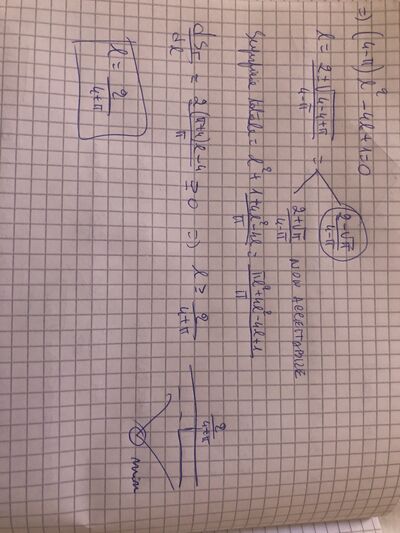 => (4-π)l² - 4l + 1 = 0
l = (2 ± √(4-4+π))/(4-π) =
(2-√π)/(4-π)
(2+√π)/(4-π) NON ACCETTABILE
Superficie totale = l² + (1+4l²-4l)/π = (πl²+4l²-4l+1)/π
dS_T/dl = (2(π+4)l-4)/π ≥ 0 => l ≥ 2/(4+π)
2/(4+π)
min
l = 2/(4+π)